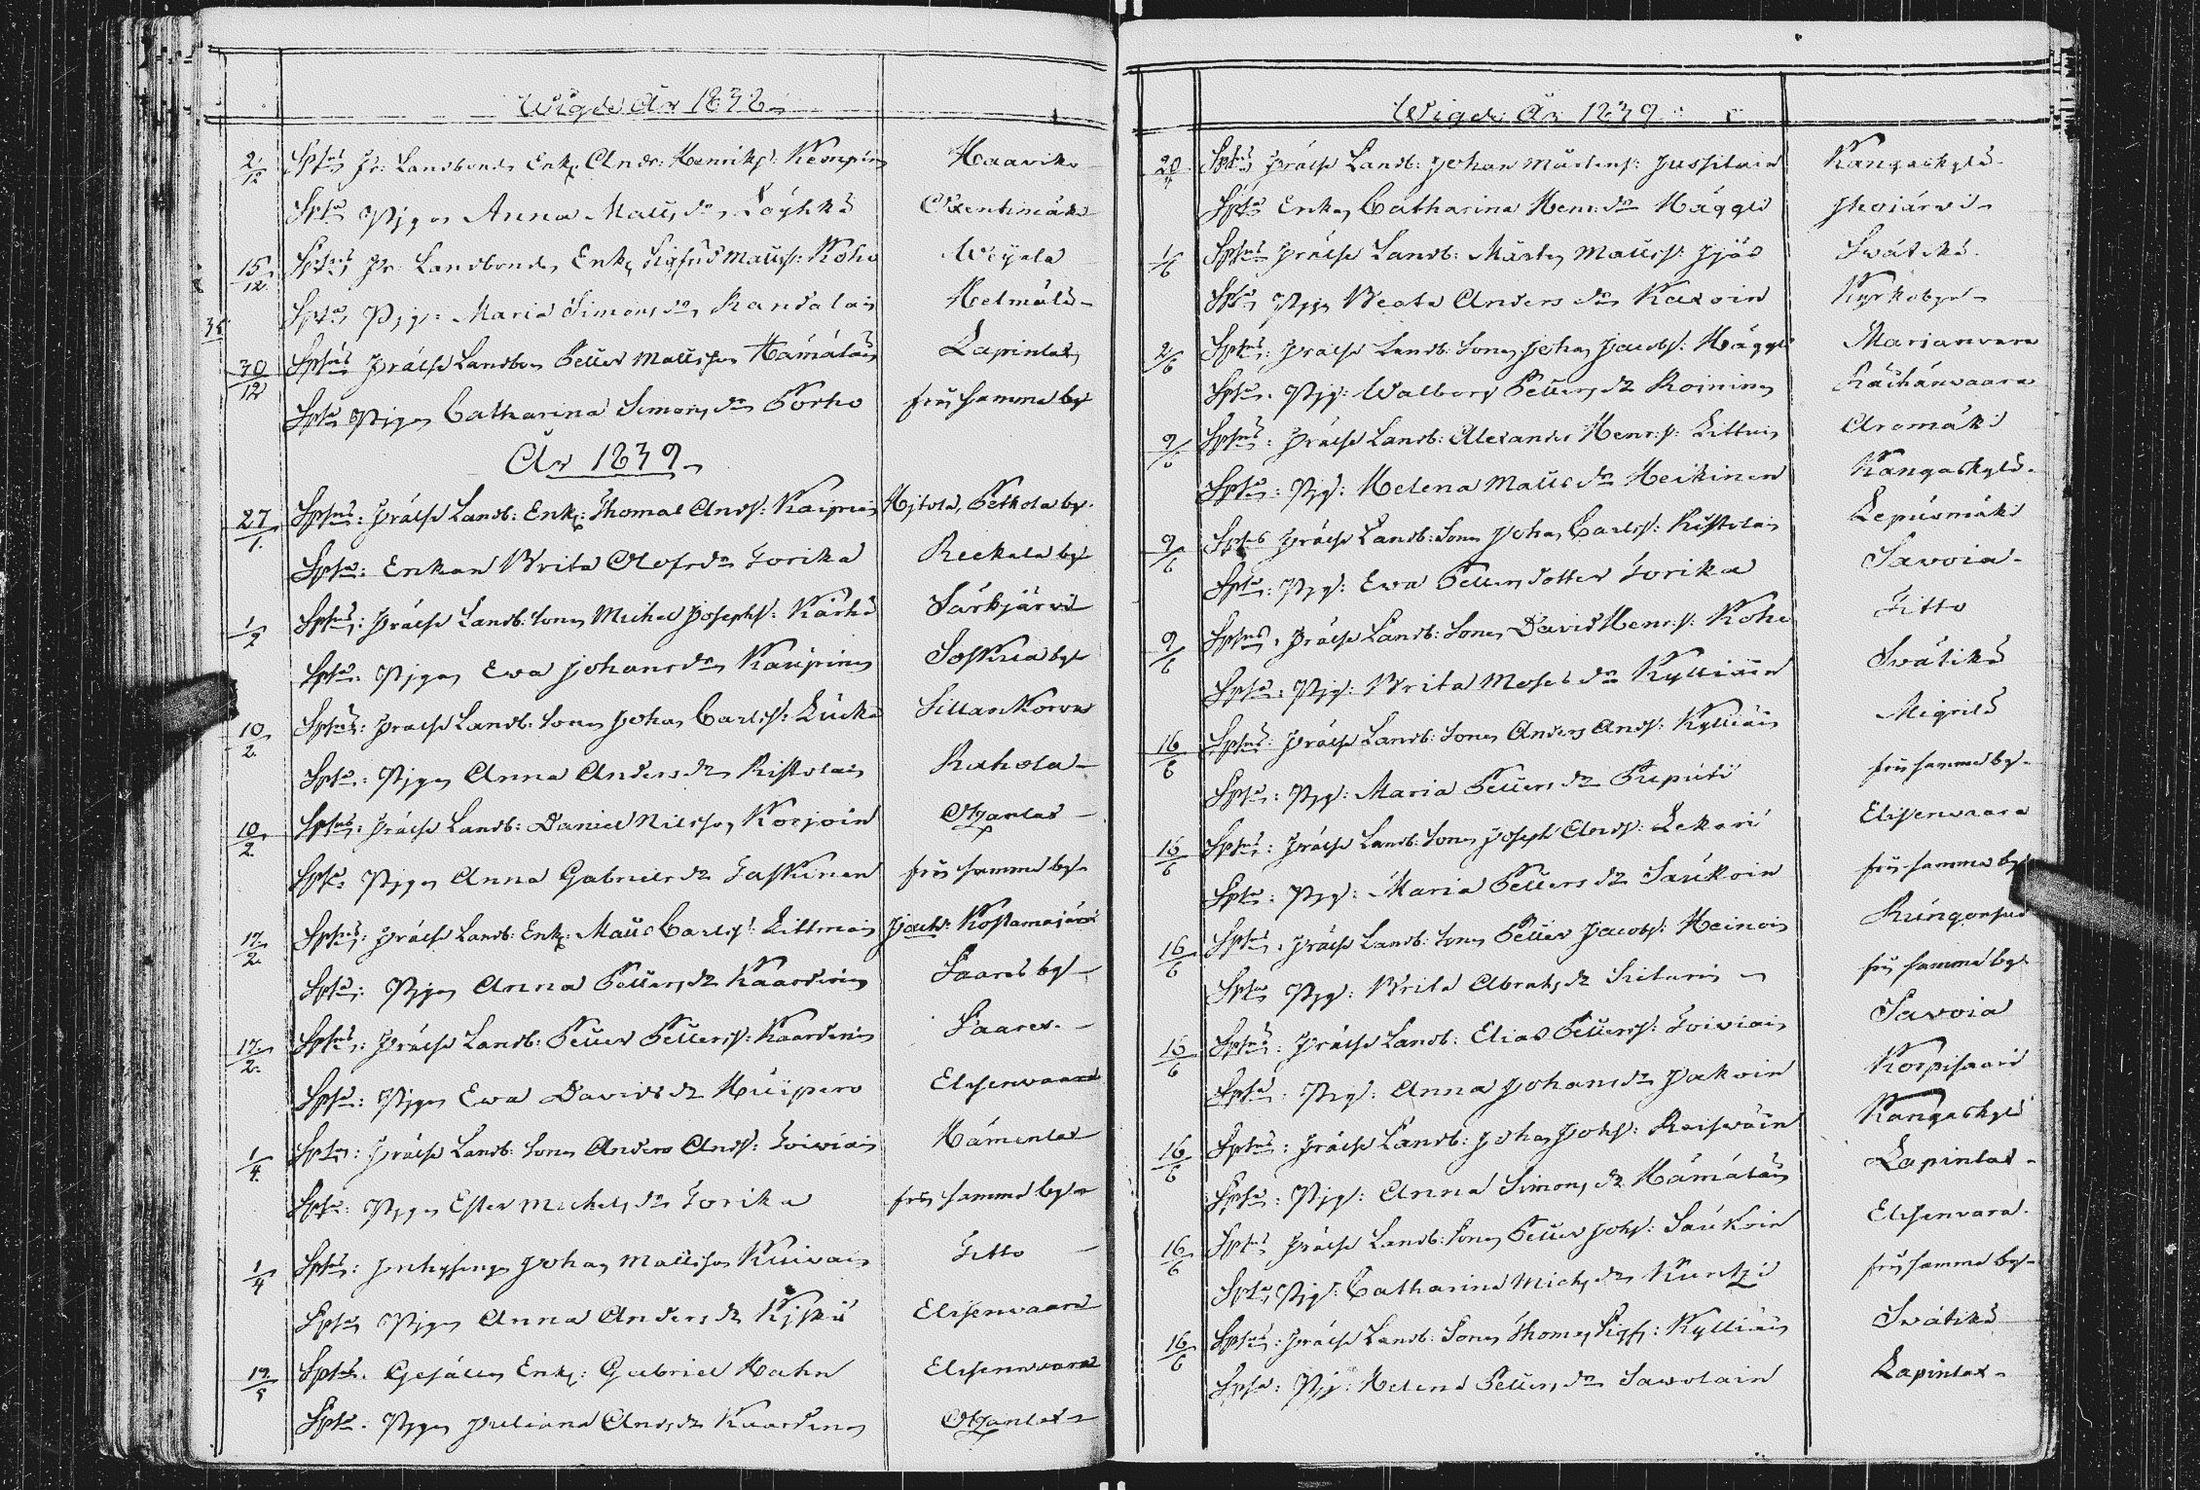 Wigde År 1838
2/12 Spsus Fr: Landbonde, Enkl Andr: Henriks: Kemppin Haaviko
Spsa Pigan Anna Matts dr Löyhkö Oxentmäki
15/12 Spsus Fr: Landbonde, Enkl Sigfrid Mattss: Koho Weijala
Spsa Pig: Maria Simons dr Randolain Helmälä
35
30/12 Spsus Frälse Landbon Petter Mattsson Hämäläin Lapinlax
Spsa Pigan Catharina Simons dr Torho från samma by
År 1839
27/1 Spsus: Frälse Landb: Enkl: Thomas Andrs: Kaipiain Hjtola, Petkola by
Spsa: Enkan Brita Olofs dr Torika Reekala by
1/2 Spsus: Frälse Landb: Son Michel Josephs: Kärhä Särkjärvi
Spsa: Pigan Ewa Johans dr Kaupinen Soskua by
10/2 Spsus: Frälse Landb: Son Johan Carlss: Liukko Sillankorva
Spsa: Pigan Anna Anders dr Ristolain Rahola
10/2 Spsus: Frälse Landb: Daniel Nilsson Korjoin Otzanlax
Spsa: Pigan Anna Gabriels dr Taskinen från samma by
17/2 Spsus: Frälse Landb: Enkl: Matts Carlss: Littmain Jaak: Kostamojärvi
Spsa: Pigan Anna Petters dr Kaardinen Saares by
17/2 Spsus: Frälse Landb: Petter Petterss: Kaardinen Saares
Spsa: Pigan Ewa Davids dr Huipero Elisenvaara
1/4 Spsus: Frälse Landb: Son Anders Andrs: Toiviain Hämenlax
Spsa: Pigan Ester Michels dr Torika från samma by
1/4 Spsus: Inhysing Johan Mattsson Kuivain Titto
Spsa Pigan Anna Anders dr Kiiskis Elisenvaara
19/5 Spsus: Gesällen Enkl: Gabriel Hahn Elisenvaara
Spsa: Pigan Juliana Anders dr Kaardinen Otzanlax
Wigde År 1839
20/4 Spsus Frälse Landb: Johan Mårtens: Jussilain Kangaskylä
Spsa Enkan Catharina Henr: dr Häggö Ihojärvi
1/6 Spsus Frälse Landb: Mårten Mattss: Ijäs Swätikä
Spsa Pigan Beata Anders dr Karvin Kyrkobyn
2/6 Spsus: Frälse Landb: Son Johan Jacobs: Häggö Marianvara
Spsa: Pig: Walborg Petters dr Roininen Räihänvaara
9/6 Spsus: Frälse Landb: Alexander Henrs: Littuin Aromäki
Spsa: Pig: Helena Matts dr Heikinen Kangaskylä
9/6 Spsus Frälse Landb: Son Johan Carlss: Ristolain Lepusmäki
Spsa: Pig: Ewa Petters dotter Torika Savoia
9/6 Spsus: Frälse Landb: Son David Henrs: Koho Titto
Spsa: Pig: Brita Moses dr Kylliäin Swätikä
16/6 Spsus: Frälse Landb: Son Anders Andrs: Kylliäin Migrilä
Spsa: Pig: Maria Petters dr Puputti från samma by
16/6 Spsus: Frälse Landb: Son Joseph Andrs: Lekari Elisenvaara
Spsa: Pig: Maria Petters dr Saukoin från samma by
16/6 Spsus: Frälse Landb: Son Petter Jacobs: Heinoin Rungonsuo
Spsa Pig: Brita Abrahs dr från samma by
16/6 Spsus: Frälse Landb: Elias Petterss: Toiviain Savoia
Spsa: Pig: Anna Johans dr Jakoin Korpisaari
16/6 Spsus: Frälse Landb: Johan Johs: Reiswäin Kangaskylä
Spsa: Pig: Anna Simons dr Hämäläin Lapinlax
16/6 Spsus Frälse Landb: Son Petter Johs: Saukoin Elisenvara
Spsa Pig: Catharina Mich: dr Kuntzi från samma by
16/6 Spsus: Frälse Landb: Son Thomas Sigfs: Kylliäin Swätikä
Spsa: Pig: Helena Petters dr Savolain Lapinlax